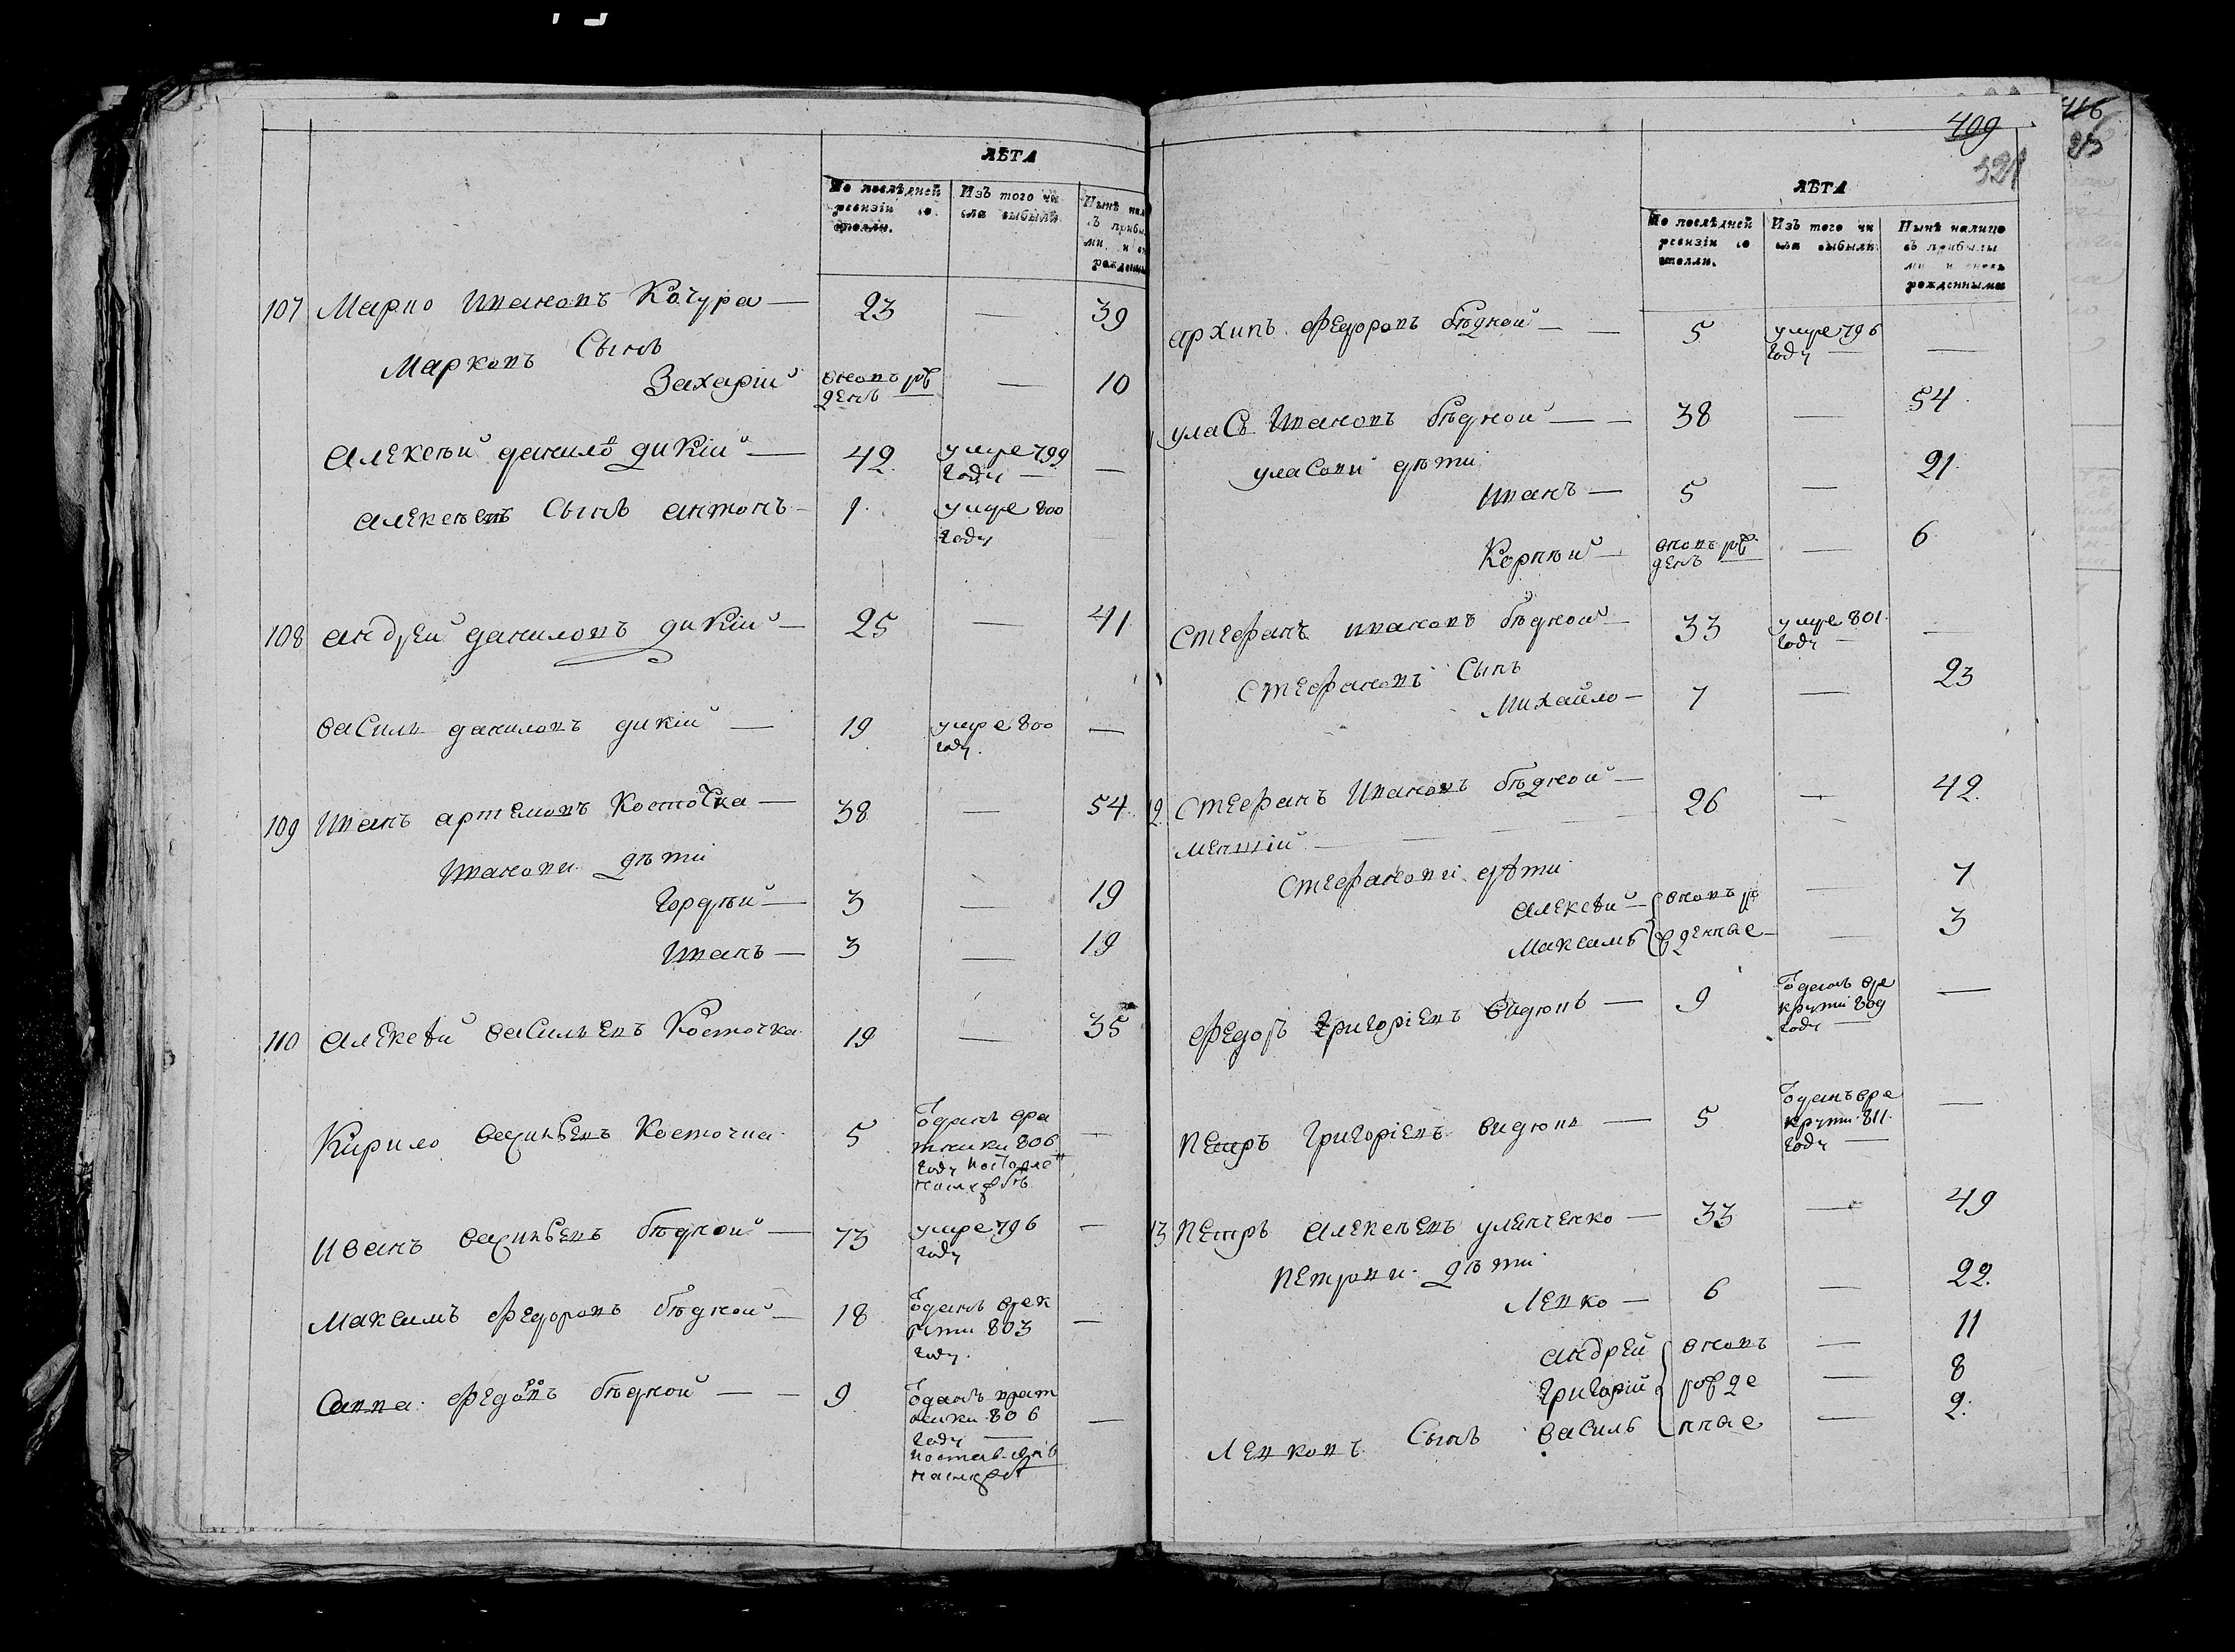 ЛѢТА
По послѣдней ревизіи со стояли.
Изъ того чи сла выбыли
Нынѣ нал
ъ прибы
ми и вн
рожденны
107 Марко Ивановъ Качура — 23 — 39
Марковъ Сынъ
Захарій вновь рож — 10
денъ
Алексѣй данилов дикій — 42 умре 799 —
году
Алексѣевъ Сынъ антонъ — 1 умре 800
году
108 андрей даниловъ дикій — 25 — 41
василь даниловъ дикій — 19 умре 800 —
году.
109 Иванъ артемовъ Косточка — 38 — 54
Иванови дѣти
Гордѣй — 3 — 19
Иванъ — 3 — 19
110 Алексѣй васильевъ Косточка 19 — 35
Кирило васильевъ Косточка 5 —
806
году
Иванъ васильевъ бѣдной — 73 умре 796 —
году
Максимъ Федоровъ бѣдной — 18 отданъ врек —
рути 803
году.
Савва Федоровъ бѣдной — 9
806 —
году
409
321
416
ЛѢТА
По послѣдней ревизіи со стояли.
Изъ того чи сла выбыли
Нынѣ налицо съ прибылы ми и вновь рожденными
архипъ Федоровъ бѣдной — 5 умре 796 —
году
уласъ Ивановъ бѣдной — 38 — 54
уласови дѣти
Иванъ — 5 — 21
Корнѣй — вновь рож — 6
денъ
Стефанъ ивановъ бѣдной — 33 умре 801 —
году
Стефановъ Сынъ
Михайло — 7 — 23
12 Стефанъ Ивановъ бѣдной — 26 — 42
менший
Стефанови дѣти
Алексѣй — вновь ро — 7
Максимъ жденные — 3
Федоръ Григоріевъ видюкъ — 9 отданъ вре —
крути 809
году
Петръ Григоріевъ видюкъ — 5 отданъ вре —
крути 811
году
13 Петръ Алексѣевъ улинченко — 33 — 49
Петрови дѣти
Левко — 6 — 22
андрей вновь — 11
Григорій рожде — 8
Левковъ Сынъ василь нные — 2